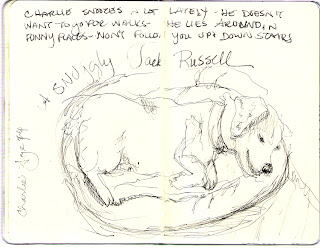 CHARLIE SNOOZES A LOT LATELY - HE DOESN'T
WANT TO GO FOR WALKS - HE LIES AROUND IN
FUNNY PLACES - WON'T FOLLOW YOU UP & DOWN STAIRS
A SNUGLY Jack Russell
Charlie age 14